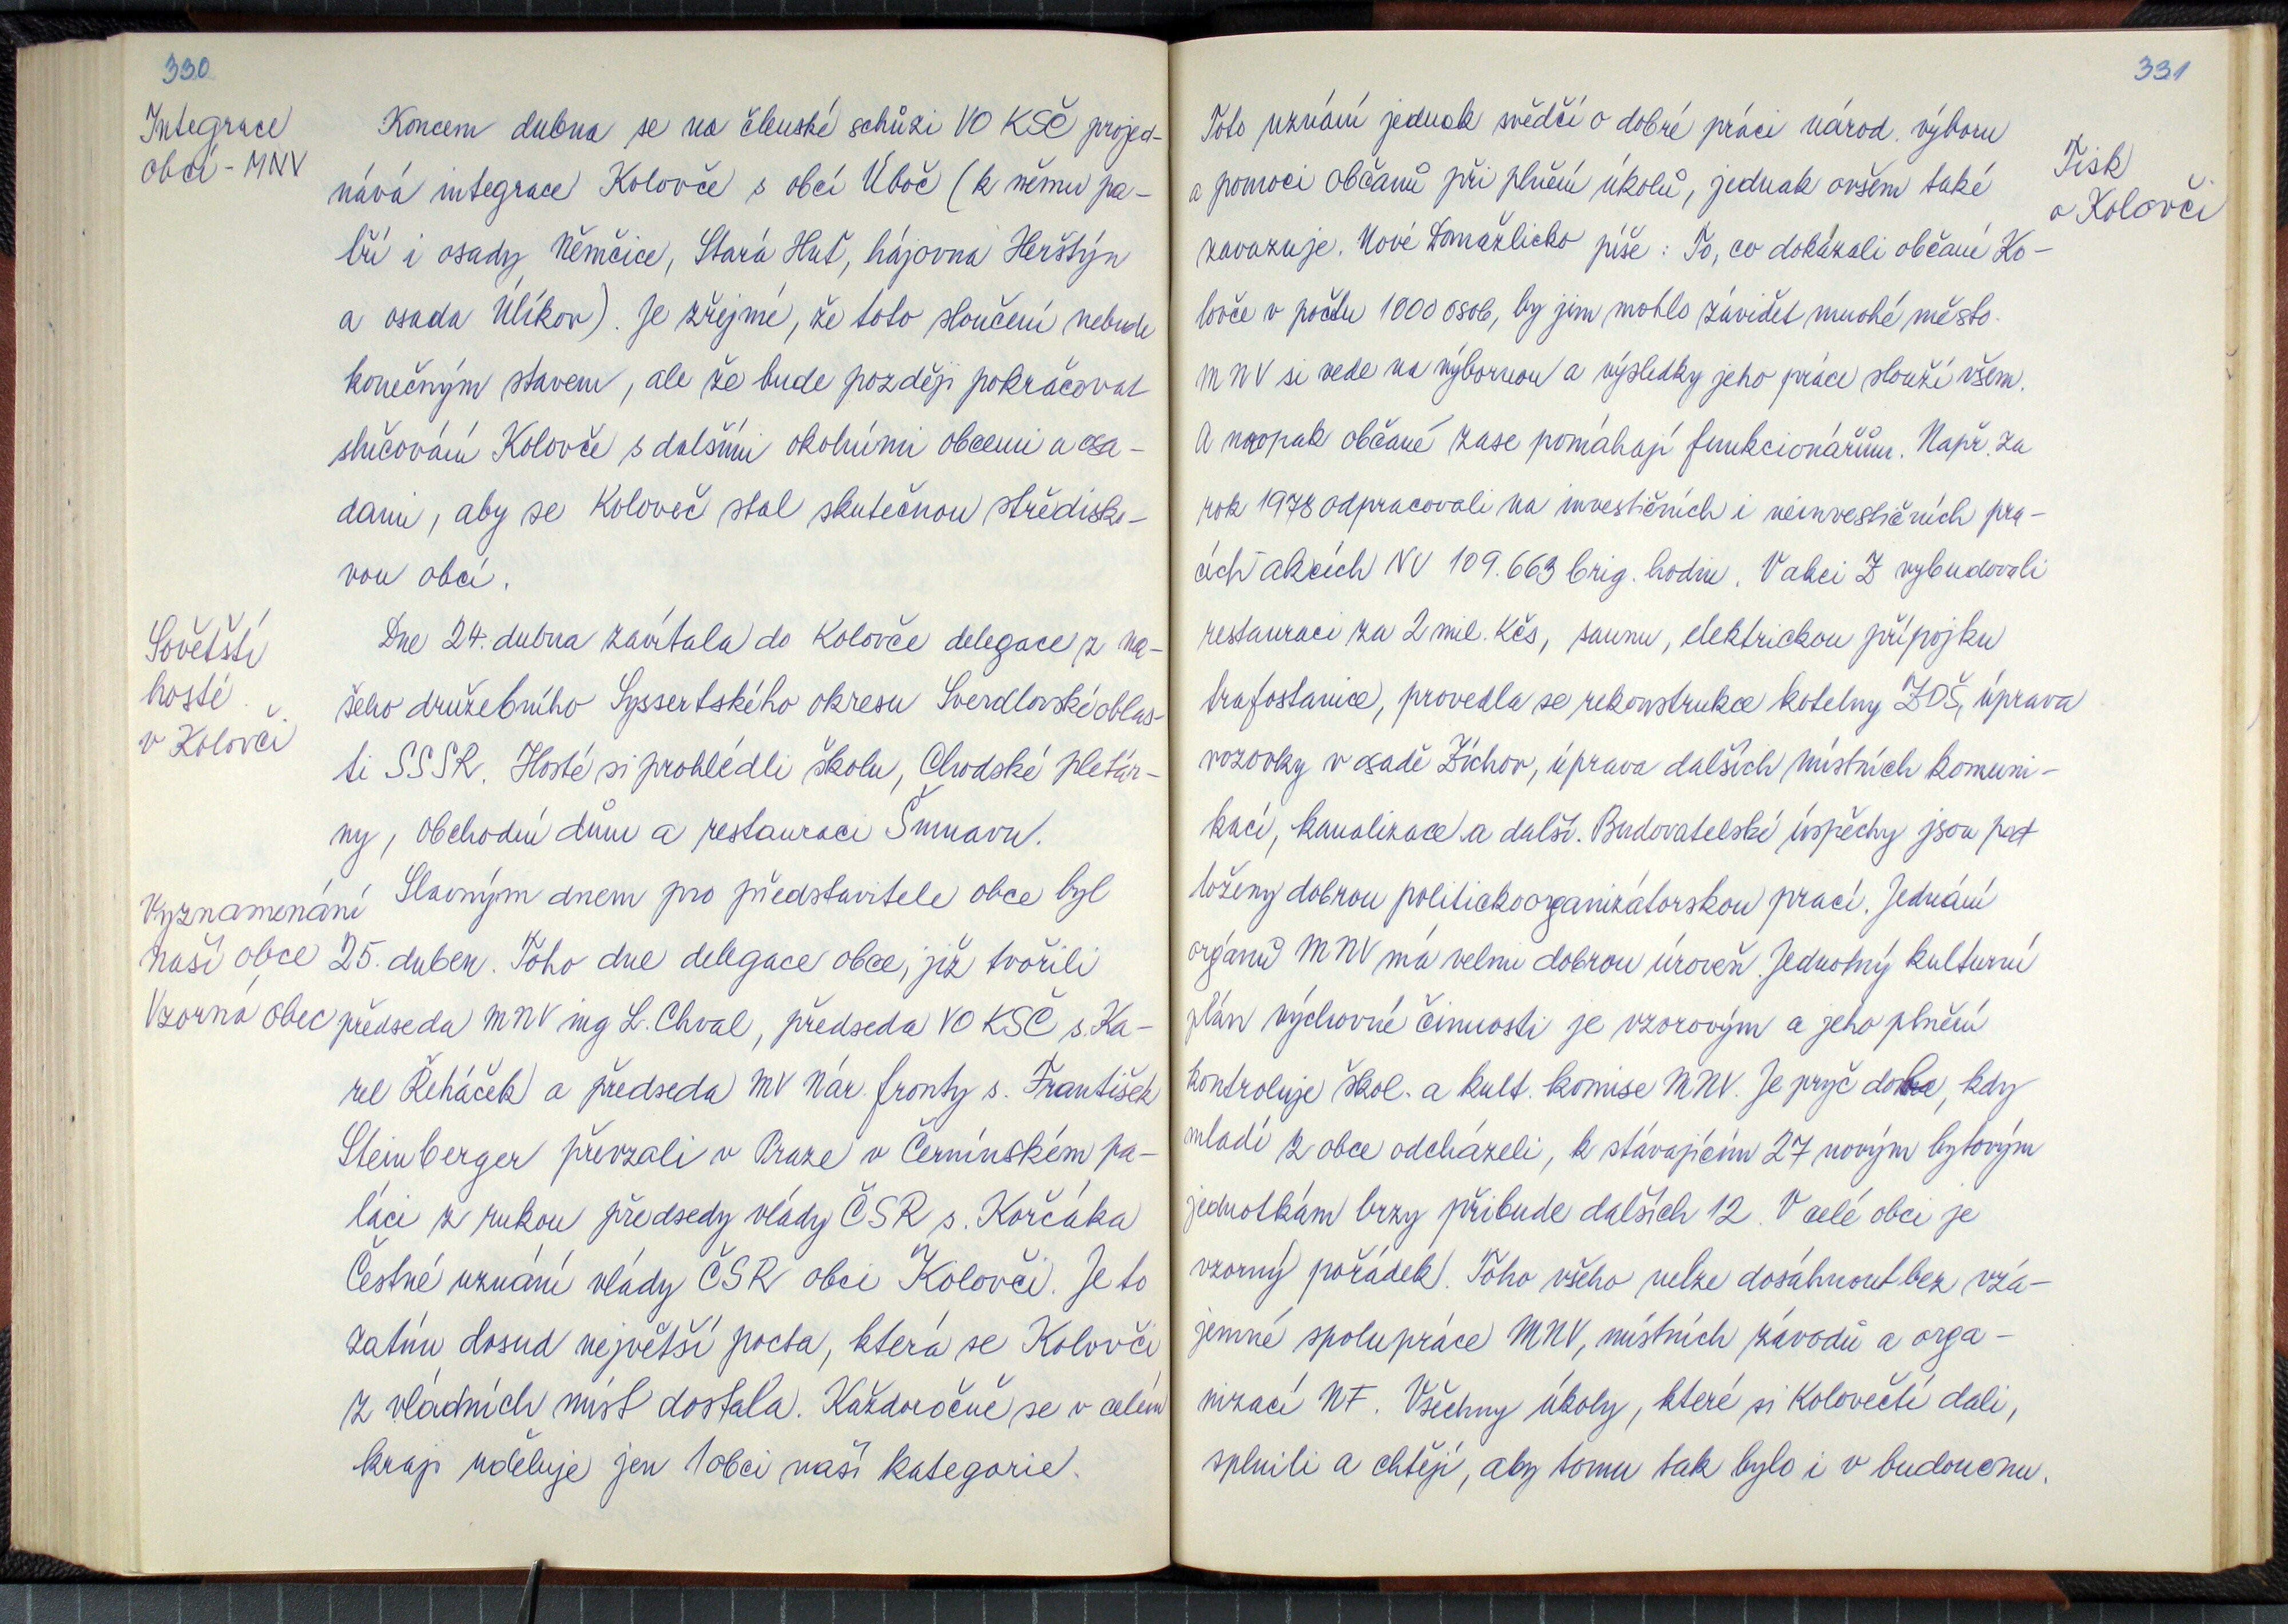 330
Integrace
obcí - MNV
Koncem dubna se na členské schůzi VO KSČ projed-
nává integrace Kolovče s obcí Úboč (k němu pa-
tří i osady Němčice, Stará Huť, hájovna Herštýn
a osada Úlíkov). Je zřejmé, že toto sloučení nebude
konečným stavem, ale že bude později pokračovat
slučování Kolovče s dalšími okolními obcemi a osa-
dami, aby se Koloveč stal skutečnou středisko-
vou obcí.
Sovětští
hosté
v Kolovči
Dne 24. dubna zavítala do Kolovče delegace z na-
šeho družebního Syssertského okresu Sverdlovské oblas-
ti SSSR. Hosté si prohlédli školu, Chodské pletár-
ny, obchodní dům a restauraci Šumavu.
Vyznamenání
naší obce
Vzorná obec
Slavným dnem pro představitele obce byl
25. duben. Toho dne delegace obce, již tvořili
předseda MNV ing L. Chval, předseda VO KSČ s. Ka-
rel Řeháček a předseda MV Nár. fronty s. František
Steinberger převzali v Praze v Černínském pa-
láci z rukou předsedy vlády ČSR s. Korčáka
Čestné uznání vlády ČSR obci Kolovči. Je to
zatím dosud největší pocta, která se Kolovči
z vládních míst dostala. Každoročně se v celém
kraji uděluje jen 1 obci naší kategorie.
331
Tisk
o Kolovči
Toto uznání jednak svědčí o dobré práci národ. výboru
a pomoci občanů při plnění úkolů, jednak ovšem také
zavazuje. Nové Domažlicko píše: To, co dokázali občané Ko-
lovče v počtu 1000 osob, by jim mohlo závidět mnohé město.
MNV si vede na výbornou a výsledky jeho práce slouží všem.
A naopak občané zase pomáhají funkcionářům. Např. za
rok 1978 odpracovali na investičních i neinvestičních pra-
cích akcích NV 109.663 brig. hodin. V akci Z vybudovali
restauraci za 2 mil. Kčs, saunu, elektrickou přípojku
trafostanice, provedla se rekonstrukce kotelny ZDŠ, úprava
vozovky v osadě Zíchov, úprava dalších místních komuni-
kací, kanalizace a další. Budovatelské úspěchy jsou pod
loženy dobrou politickoorganizátorskou prací. Jednání
orgánů MNV má velmi dobrou úroveň. Jednotný kulturní
plán výchovné činnosti je vzorovým a jeho plnění
kontroluje škol. a kult. komise MNV. Je pryč doba, kdy
mladí z obce odcházeli, k stávajícím 27 novým bytovým
jednotkám brzy přibude dalších 12. V celé obci je
vzorný pořádek. Toho všeho nelze dosáhnout bez vzá-
jemné spolupráce MNV, místních závodů a orga-
nizací NF. Všechny úkoly, které si Kolovečtí dali,
splnili a chtějí, aby tomu tak bylo i v budoucnu.